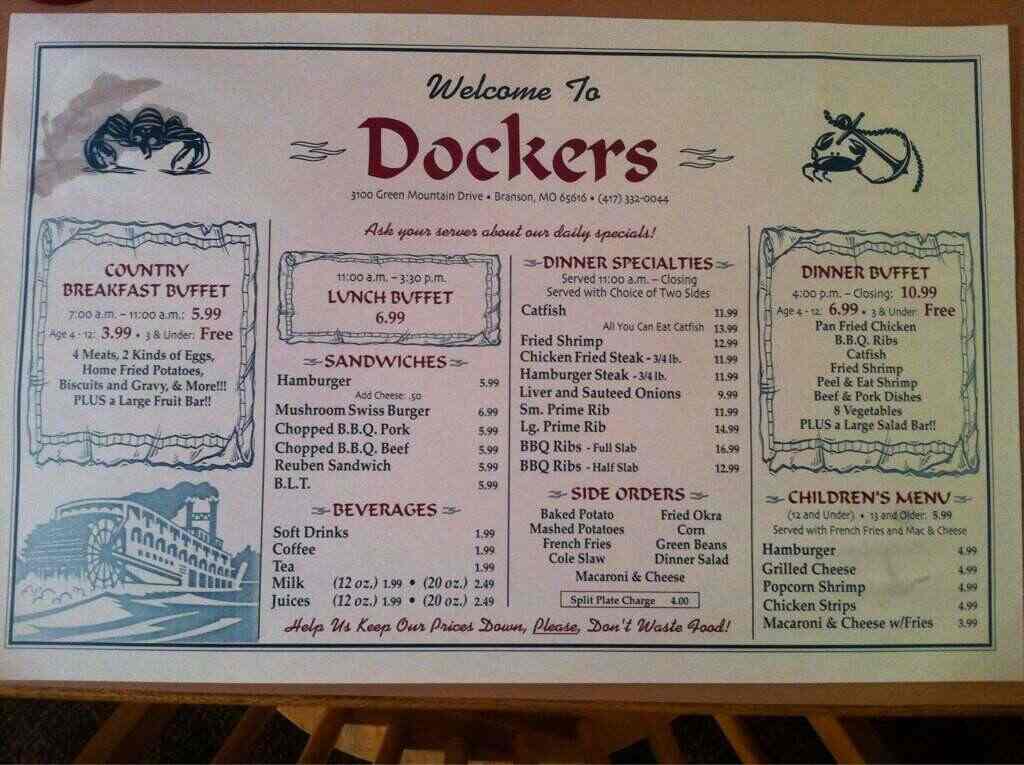 Welcome To
Dockers
3100 Green Mountain Drive • Branson, MO 65616 • (417) 332-0044
Ask your server about our daily specials!
COUNTRY
BREAKFAST BUFFET
7:00 a.m. – 11:00 a.m.: 5.99
Age 4 - 12: 3.99 • 3 & Under: Free
4 Meats, 2 Kinds of Eggs,
Home Fried Potatoes,
Biscuits and Gravy, & More!!!
PLUS a Large Fruit Bar!!
11:00 a.m. – 3:30 p.m.
LUNCH BUFFET
6.99
SANDWICHES
Hamburger 5.99
Add Cheese: .50
Mushroom Swiss Burger 6.99
Chopped B.B.Q. Pork 5.99
Chopped B.B.Q. Beef 5.99
Reuben Sandwich 5.99
B.L.T. 5.99
BEVERAGES
Soft Drinks 1.99
Coffee 1.99
Tea 1.99
Milk (12 oz.) 1.99 • (20 oz.) 2.49
Juices (12 oz.) 1.99 • (20 oz.) 2.49
DINNER SPECIALTIES
Served 11:00 a.m. – Closing
Served with Choice of Two Sides
Catfish 11.99
All You Can Eat Catfish 13.99
Fried Shrimp 12.99
Chicken Fried Steak - 3/4 lb. 11.99
Hamburger Steak - 3/4 lb. 11.99
Liver and Sauteed Onions 9.99
Sm. Prime Rib 11.99
Lg. Prime Rib 14.99
BBQ Ribs - Full Slab 16.99
BBQ Ribs - Half Slab 12.99
SIDE ORDERS
Baked Potato Fried Okra
Mashed Potatoes Corn
French Fries Green Beans
Cole Slaw Dinner Salad
Macaroni & Cheese
Split Plate Charge 4.00
DINNER BUFFET
4:00 p.m. – Closing: 10.99
Age 4 - 12: 6.99 • 3 & Under: Free
Pan Fried Chicken
B.B.Q. Ribs
Catfish
Fried Shrimp
Peel & Eat Shrimp
Beef & Pork Dishes
8 Vegetables
PLUS a Large Salad Bar!!
CHILDREN'S MENU
(12 and Under) • 13 and Older: 5.99
Served with French Fries and Mac & Cheese
Hamburger 4.99
Grilled Cheese 4.99
Popcorn Shrimp 4.99
Chicken Strips 4.99
Macaroni & Cheese w/Fries 3.99
Help Us Keep Our Prices Down, Please, Don't Waste Food!